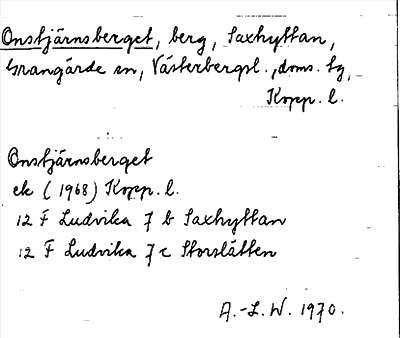 Onstjärnsberget, berg, Saxhyttan,
Grangärde sn, Västerbergsl., doms. tg,
Kopp. l.
Onstjärnsberget
ek (1968) Kopp. l.
12 F Ludvika 7 b Saxhyttan
12 F Ludvika 7 c Storslätten
A.-L. W. 1970.